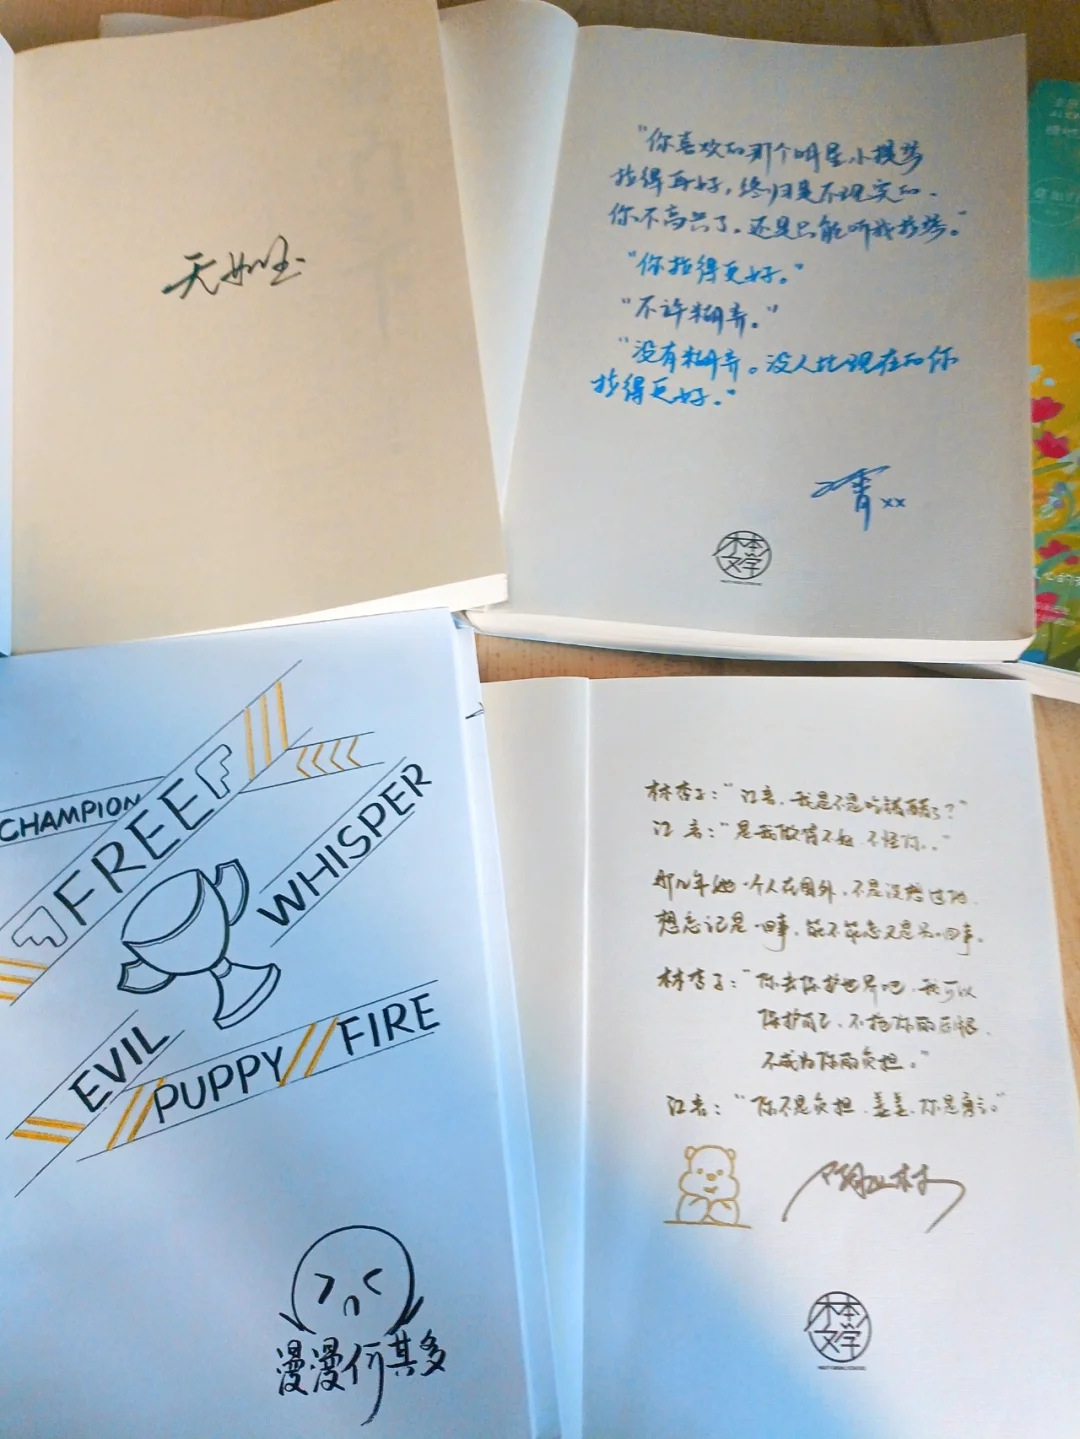 天如玉
"你喜欢的那个明星小提琴
拉得再好，终归是不现实的。
你不高兴了，还是只能听我拉琴。"
"你拉得更好。"
"不许糊弄。"
"没有糊弄。没人比现在的你
拉得更好。"
xx
木本
文学
CHAMPION
FREE
F
WHISPER
EVIL
PUPPY
FIRE
漫漫何其多
林杏子："我是不是吃错醋了？"
"是我做得不好，不怪你。"
那几年她一个人在国外，不是没想过他。
想忘记是一回事，能不能忘又是另一回事。
林杏子："你去保护世界吧，我可以
保护自己，不拖你的后腿，
不成为你的负担。"
"你不是负担，你是
木本
文学